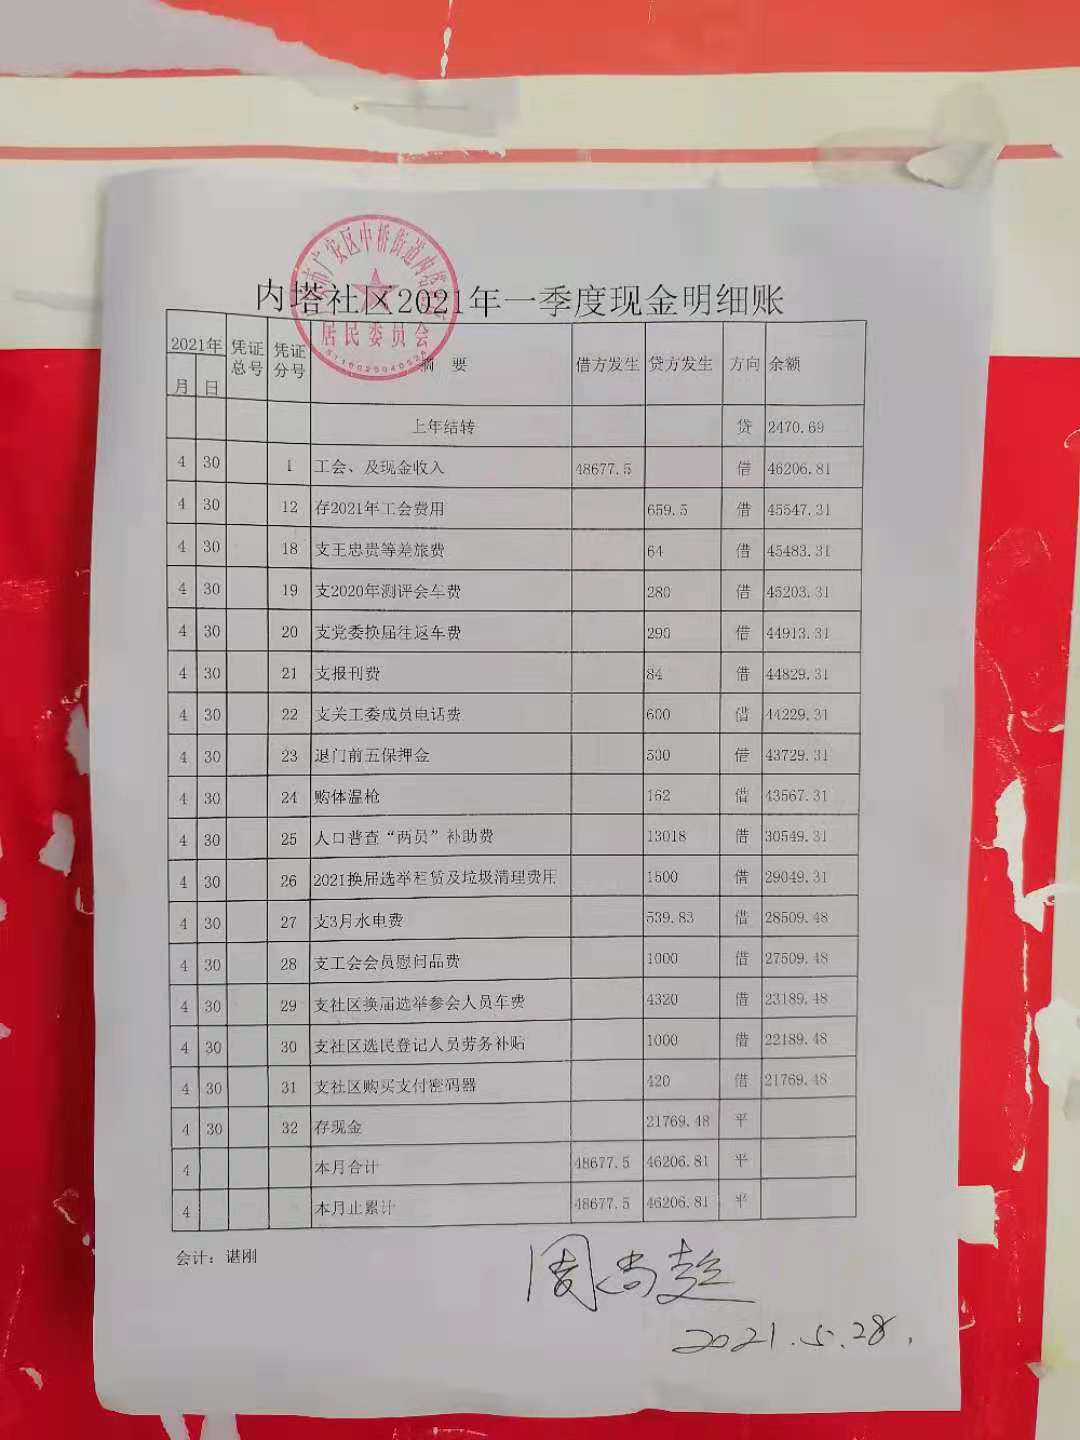 市广安区中桥街道内塔
居民委员会
内塔社区2021年一季度现金明细账
2021年 凭证总号 凭证分号 摘 要 借方发生 贷方发生 方向 余额
月 日
上年结转 贷 2470.69
4 30 1 工会、及现金收入 48677.5 借 46206.81
4 30 12 存2021年工会费用 659.5 借 45547.31
4 30 18 支王忠贵等差旅费 64 借 45483.31
4 30 19 支2020年测评会车费 280 借 45203.31
4 30 20 支党委换届往返车费 290 借 44913.31
4 30 21 支报刊费 84 借 44829.31
4 30 22 支关工委成员电话费 600 借 44229.31
4 30 23 退门前五保押金 500 借 43729.31
4 30 24 购体温枪 162 借 43567.31
4 30 25 人口普查“两员”补助费 13018 借 30549.31
4 30 26 2021换届选举租赁及垃圾清理费用 1500 借 29049.31
4 30 27 支3月水电费 539.83 借 28509.48
4 30 28 支工会会员慰问品费 1000 借 27509.48
4 30 29 支社区换届选举参会人员车费 4320 借 23189.48
4 30 30 支社区选民登记人员劳务补贴 1000 借 22189.48
4 30 31 支社区购买支付密码器 420 借 21769.48
4 30 32 存现金 21769.48 平
4 本月合计 48677.5 46206.81 平
4 本月止累计 48677.5 46206.81 平
会计：谌刚
周尚赼
2021.5.28.